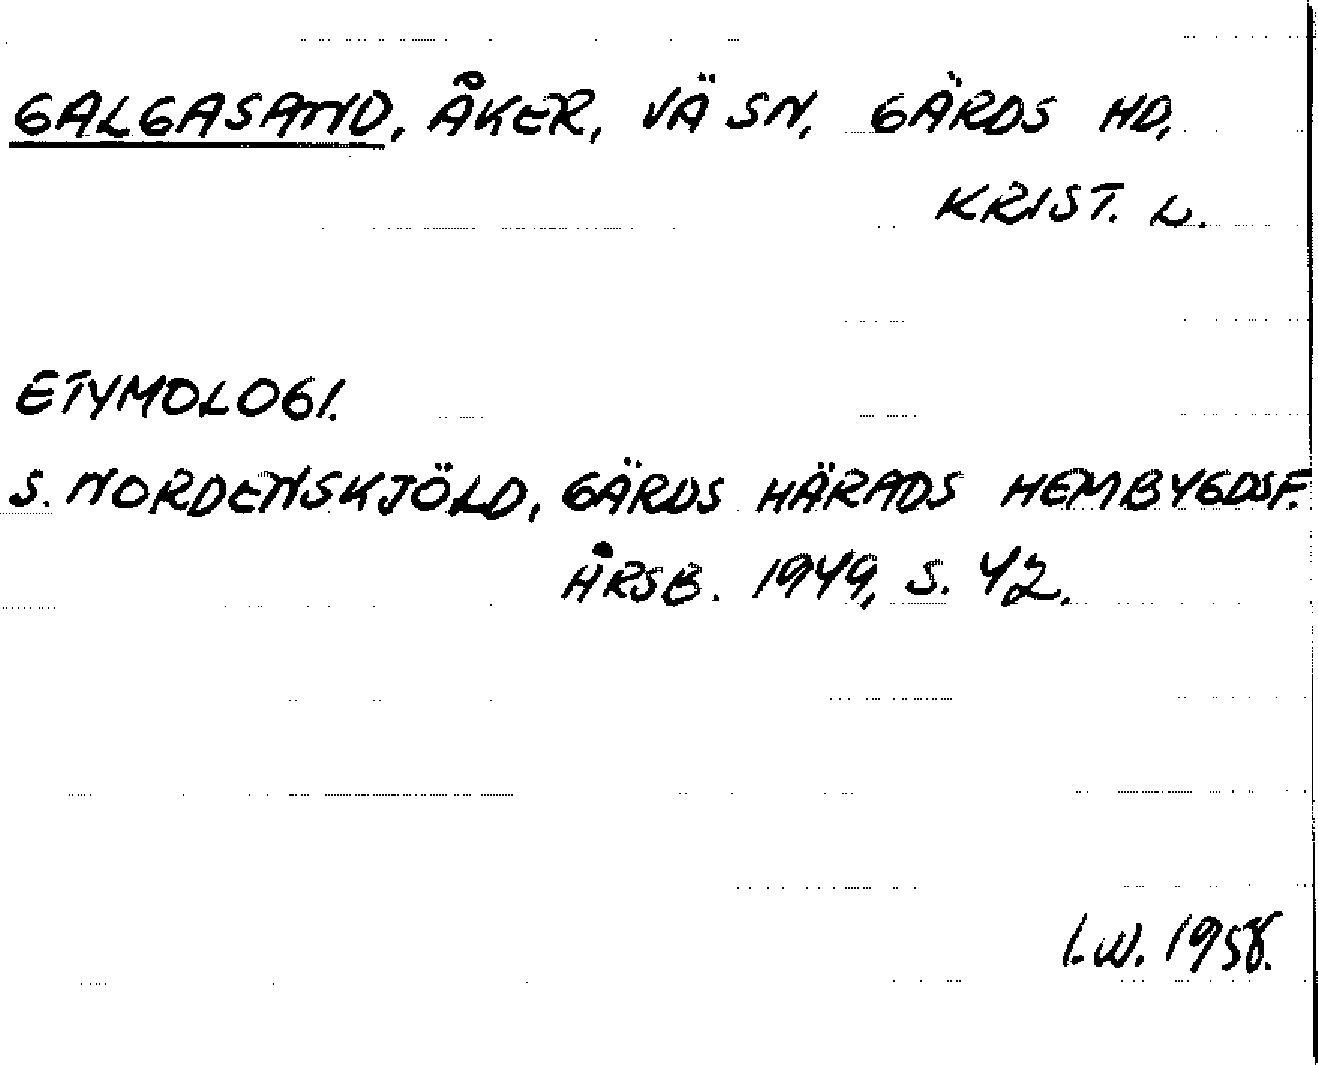 GALGASAND, ÅKER, VÄ SN, GÄRDS HD,
KRIST. L.
ETYMOLOGI.
S. NORDENSKJÖLD, GÄRDS HÄRADS HEMBYGDSF.
ÅRSB. 1949, S. 42.
I.W. 1958.